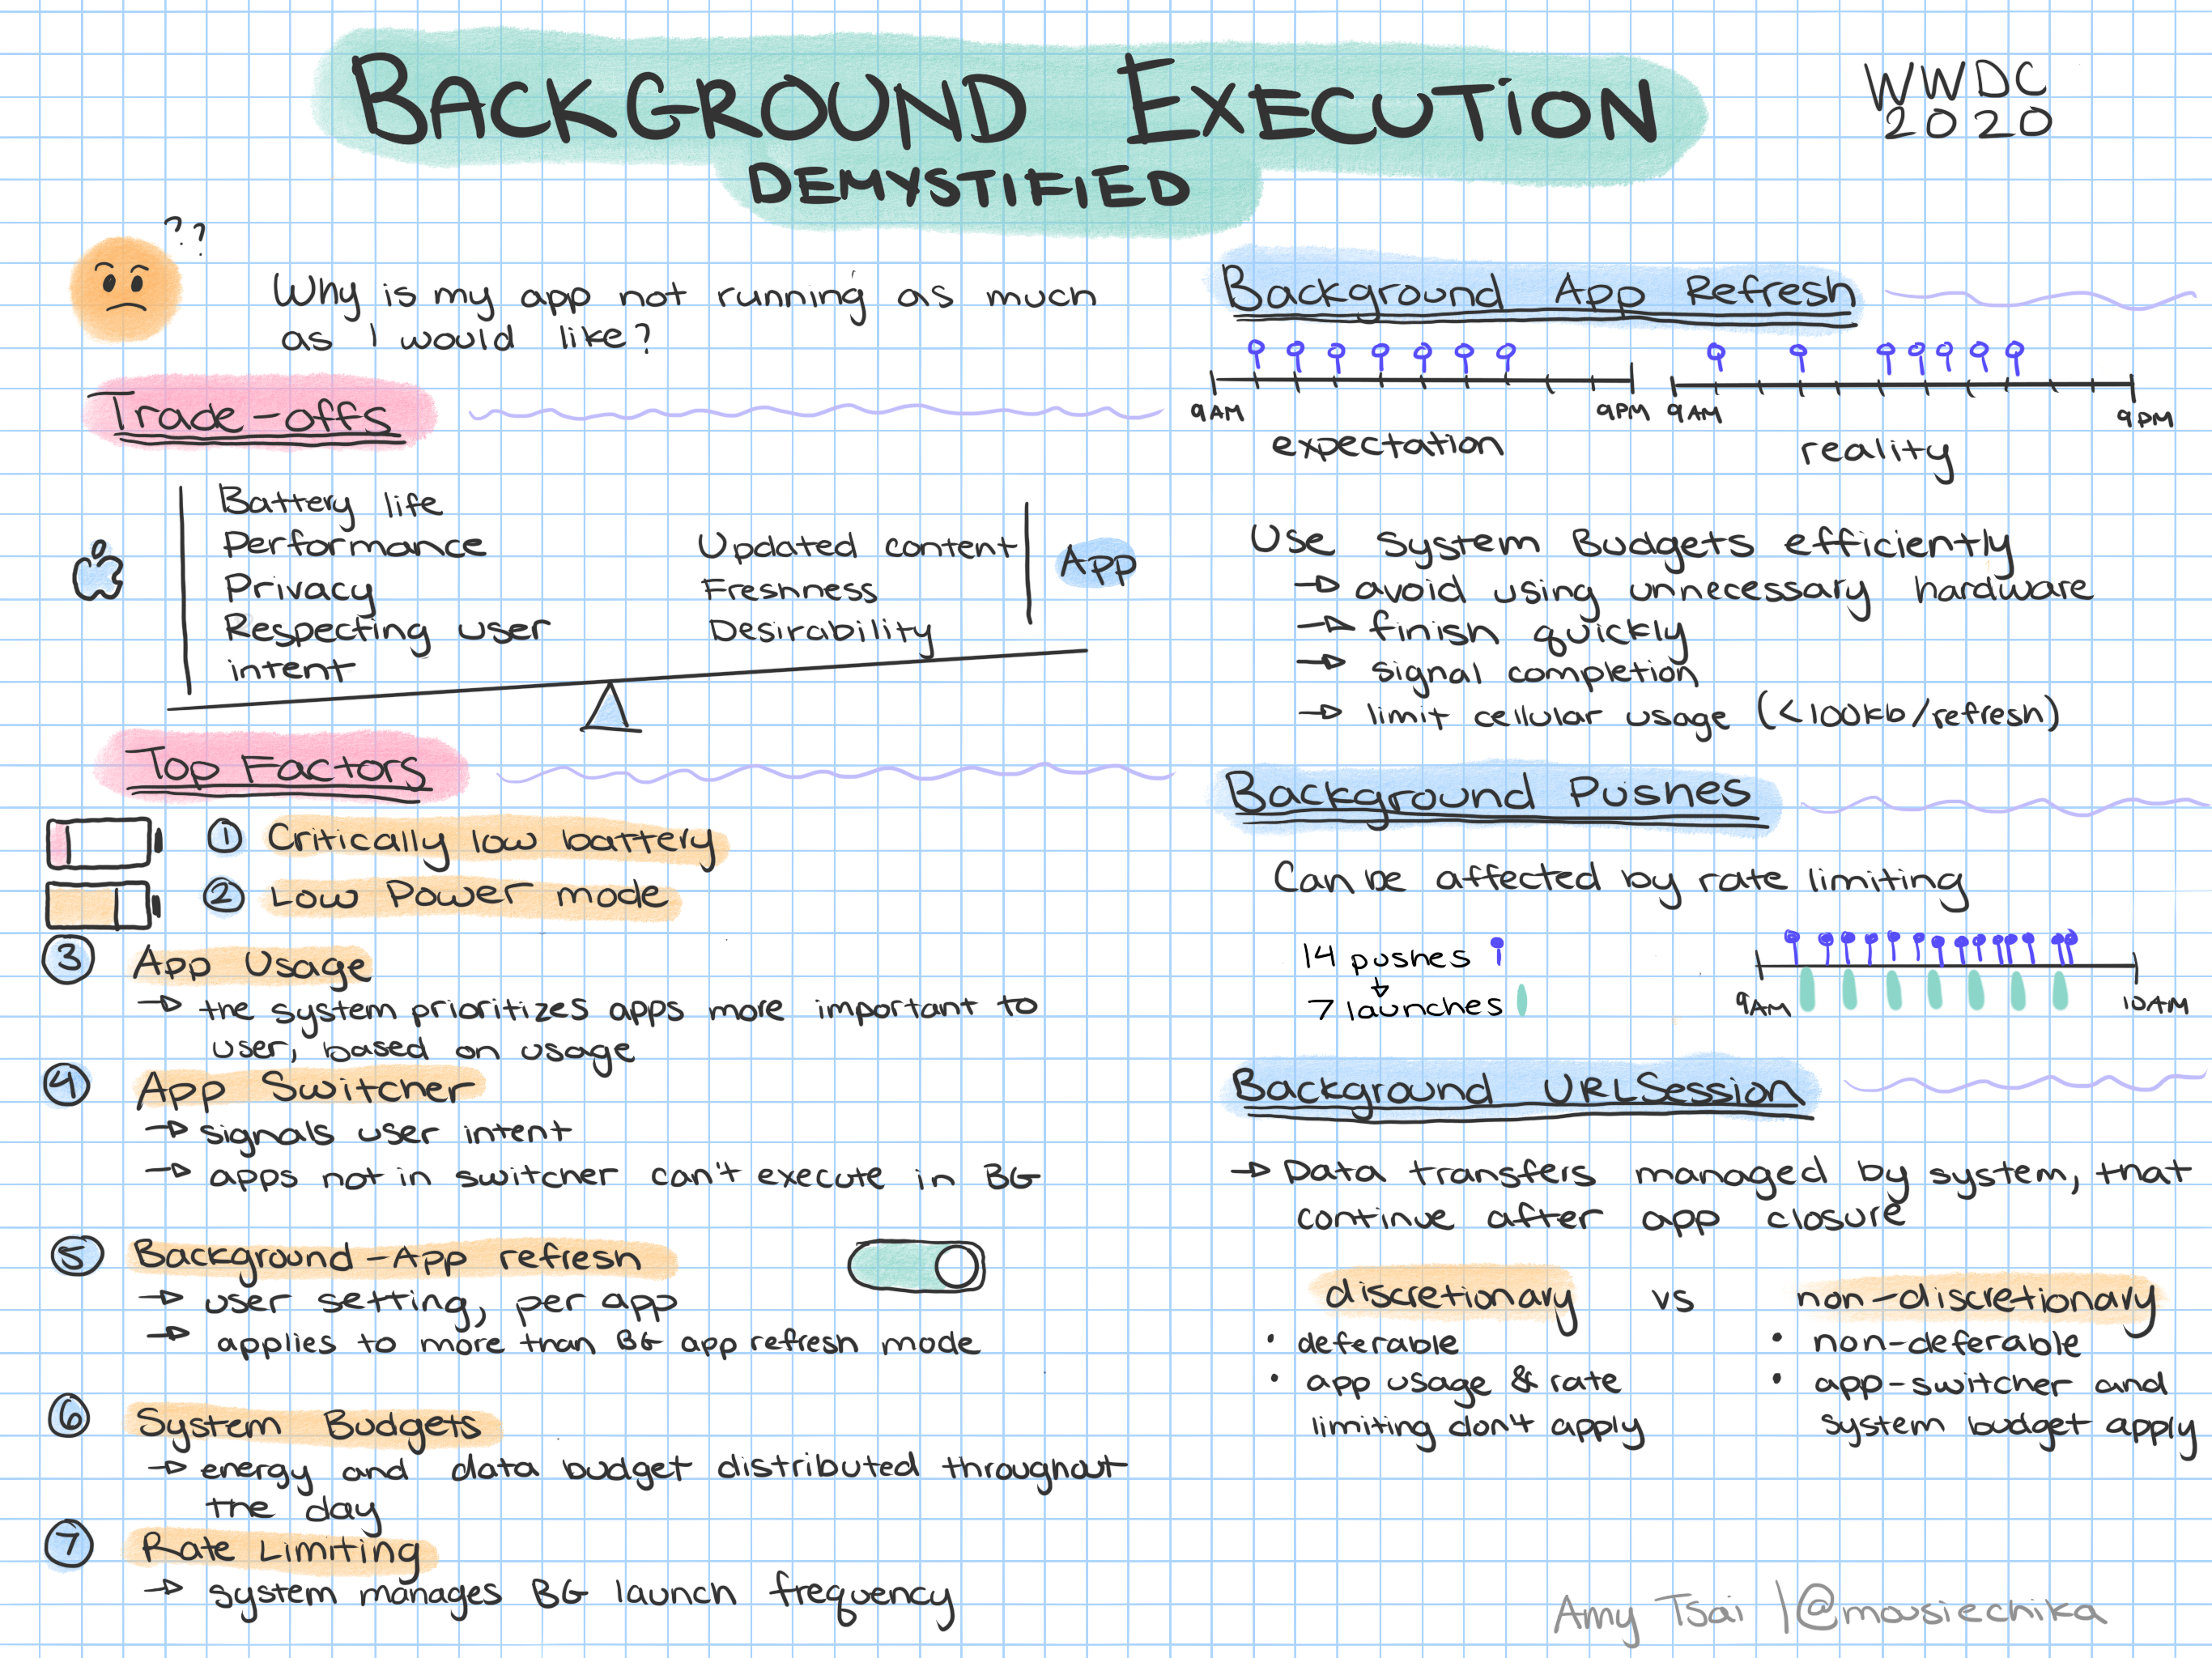 BACKGROUND EXECUTION
DEMYSTIFIED
WWDC
2020
??
Why is my app not running as much
as I would like?
Trade-offs
Battery life
Performance
Privacy
Respecting user
intent
Updated content
Freshness
Desirability
App
Top Factors
1 Critically low battery
2 Low Power mode
3 App Usage
→ the system prioritizes apps more important to
user, based on usage
4 App Switcher
→ signals user intent
→ apps not in switcher can't execute in BG
5 Background-App refresh
→ user setting, per app
→ applies to more than BG app refresh mode
6 System Budgets
→ energy and data budget distributed throughout
the day
7 Rate Limiting
→ system manages BG launch frequency
Background App Refresh
9AM 9PM
expectation
9AM 9PM
reality
Use System Budgets efficiently
→ avoid using unnecessary hardware
→ finish quickly
→ signal completion
→ limit cellular usage (<100kb/refresh)
Background Pushes
Can be affected by rate limiting
14 pushes
↓
7 launches
9AM 10AM
Background URLSession
→ Data transfers managed by system, that
continue after app closure
discretionary vs non-discretionary
• deferable
• app usage & rate
limiting don't apply
• non-deferable
• app-switcher and
system budget apply
Amy Tsai | @mousiechika